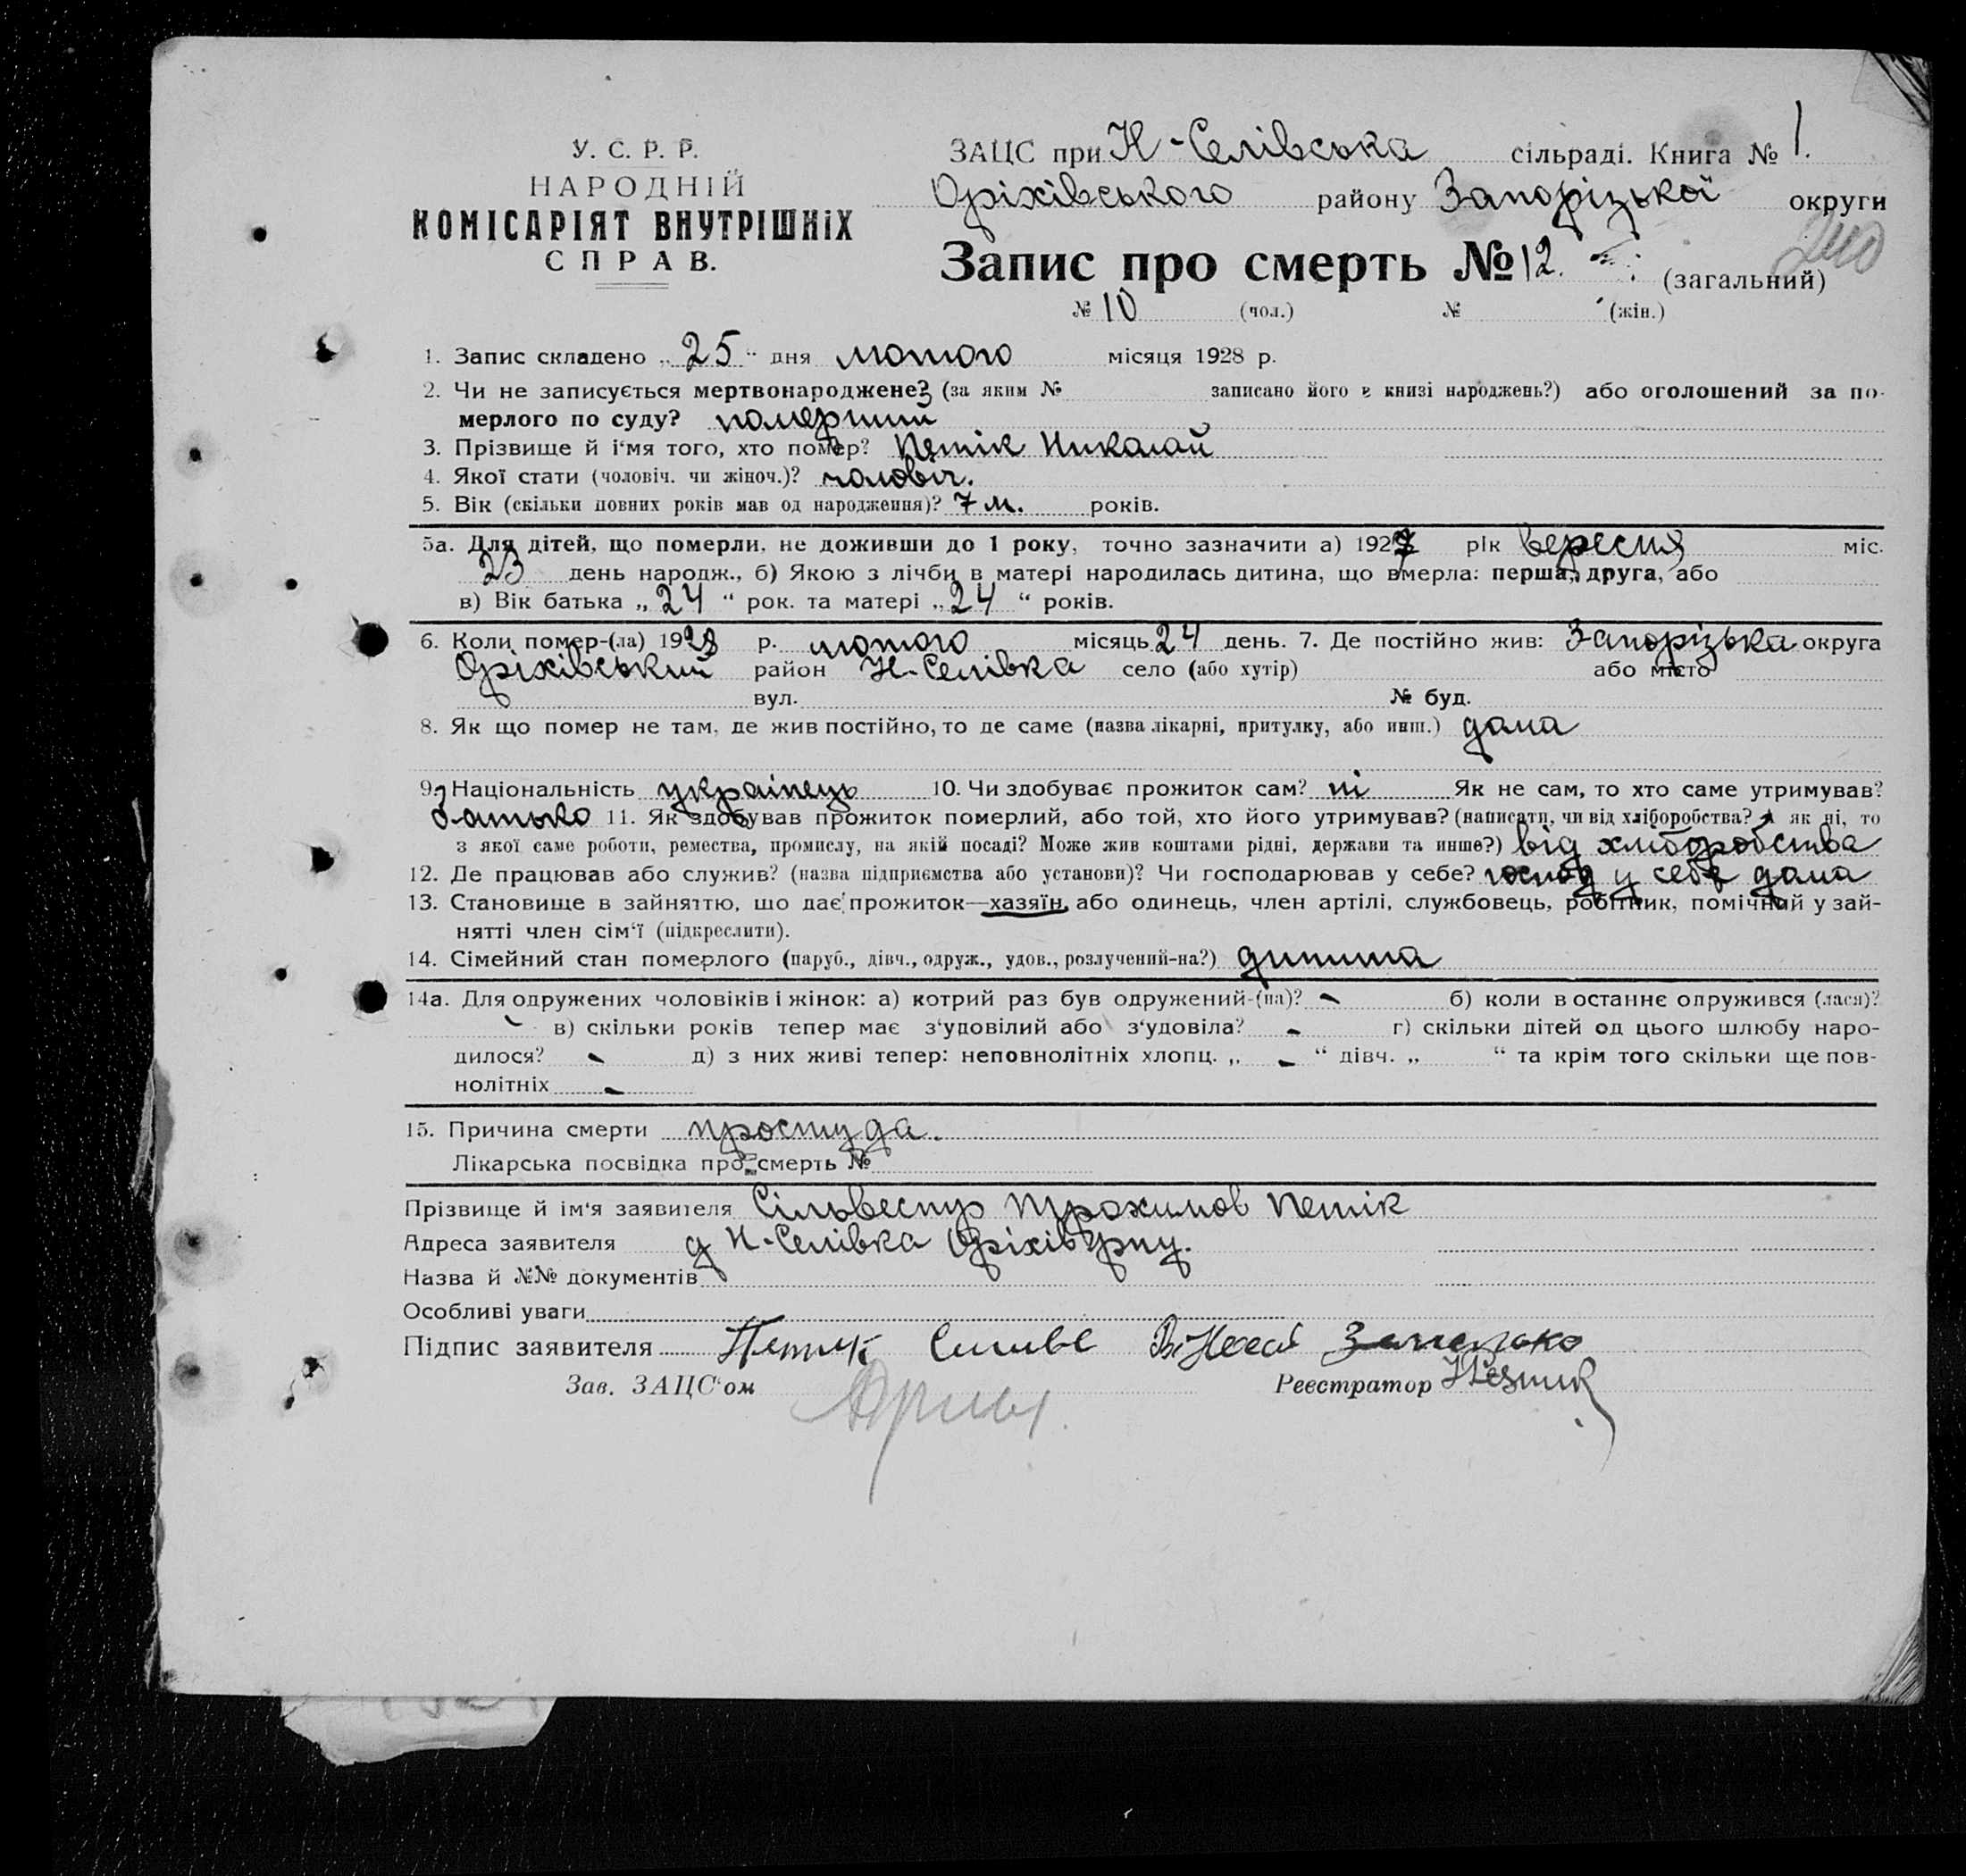 У. С. Р. Р.
НАРОДНІЙ
КОМІСАРІЯТ ВНУТРІШНІХ
СПРАВ.
ЗАЦС при Н-Селівська сільраді. Книга № 1.
Оріхівського району Запорізької округи
Запис про смерть № 12. (загальний)
№ 10 (чол.) № (жін.)
1. Запис складено „ 25 “ дня лютого місяця 1928 р.
2. Чи не записується мертвонароджене? (за яким № записано його в книзі народжень?) або оголошений за по-
мерлого по суду? померший
3. Прізвище й і'мя того, хто помер? Петік Николай
4. Якої стати (чоловіч. чи жіноч.)? чоловіч.
5. Вік (скільки повних років мав од народження)? 7 м. років.
5а. Для дітей, що померли, не доживши до 1 року, точно зазначити а) 1927 рік вересня міс.
23 день народж., б) Якою з лічби в матері народилась дитина, що вмерла: перша, друга, або
в) Вік батька „ 24 “ рок. та матері „ 24 “ років.
6. Коли помер-(ла) 1928 р. лютого місяць 24 день. 7. Де постійно жив: Запорізька округа
Оріхівський район Н-Селівка село (або хутір) або місто
вул. № буд.
8. Як що помер не там, де жив постійно, то де саме (назва лікарні, притулку, або инш.) дома
9. Національність українець 10. Чи здобуває прожиток сам? ні Як не сам, то хто саме утримував?
батько 11. Як здобував прожиток померлий, або той, хто його утримував? (написати, чи від хліборобства? А як ні, то
з якої саме роботи, ремества, промислу, на якій посаді? Може жив коштами рідні, держави та инше?) від хліборобства
12. Де працював або служив? (назва підприємства або установи)? Чи господарював у себе? господ у себе дома
13. Становище в зайняттю, що дає прожиток—хазяїн, або одинець, член артілі, службовець, робітник, помічний у зай-
нятті член сім'ї (підкреслити).
14. Сімейний стан померлого (паруб., дівч., одруж., удов., розлучений-на?) дитина
14а. Для одружених чоловіків і жінок: а) котрий раз був одружений-(на)? - б) коли в останнє одружився (лася)?
- в) скільки років тепер має з'удовілий або з'удовіла? - г) скільки дітей од цього шлюбу наро-
дилося? - д) з них живі тепер: неповнолітніх хлопц. „ - “ дівч. „ “ та крім того скільки ще пов-
нолітніх -
15. Причина смерти простуда.
Лікарська посвідка про смерть №
Прізвище й ім'я заявителя Сільвестр Трохимов Петік
Адреса заявителя Н-Селівка Оріхів
Назва й №№ документів
Особливі уваги
Підпис заявителя Петик
Зав. ЗАЦС'ом
Реестратор